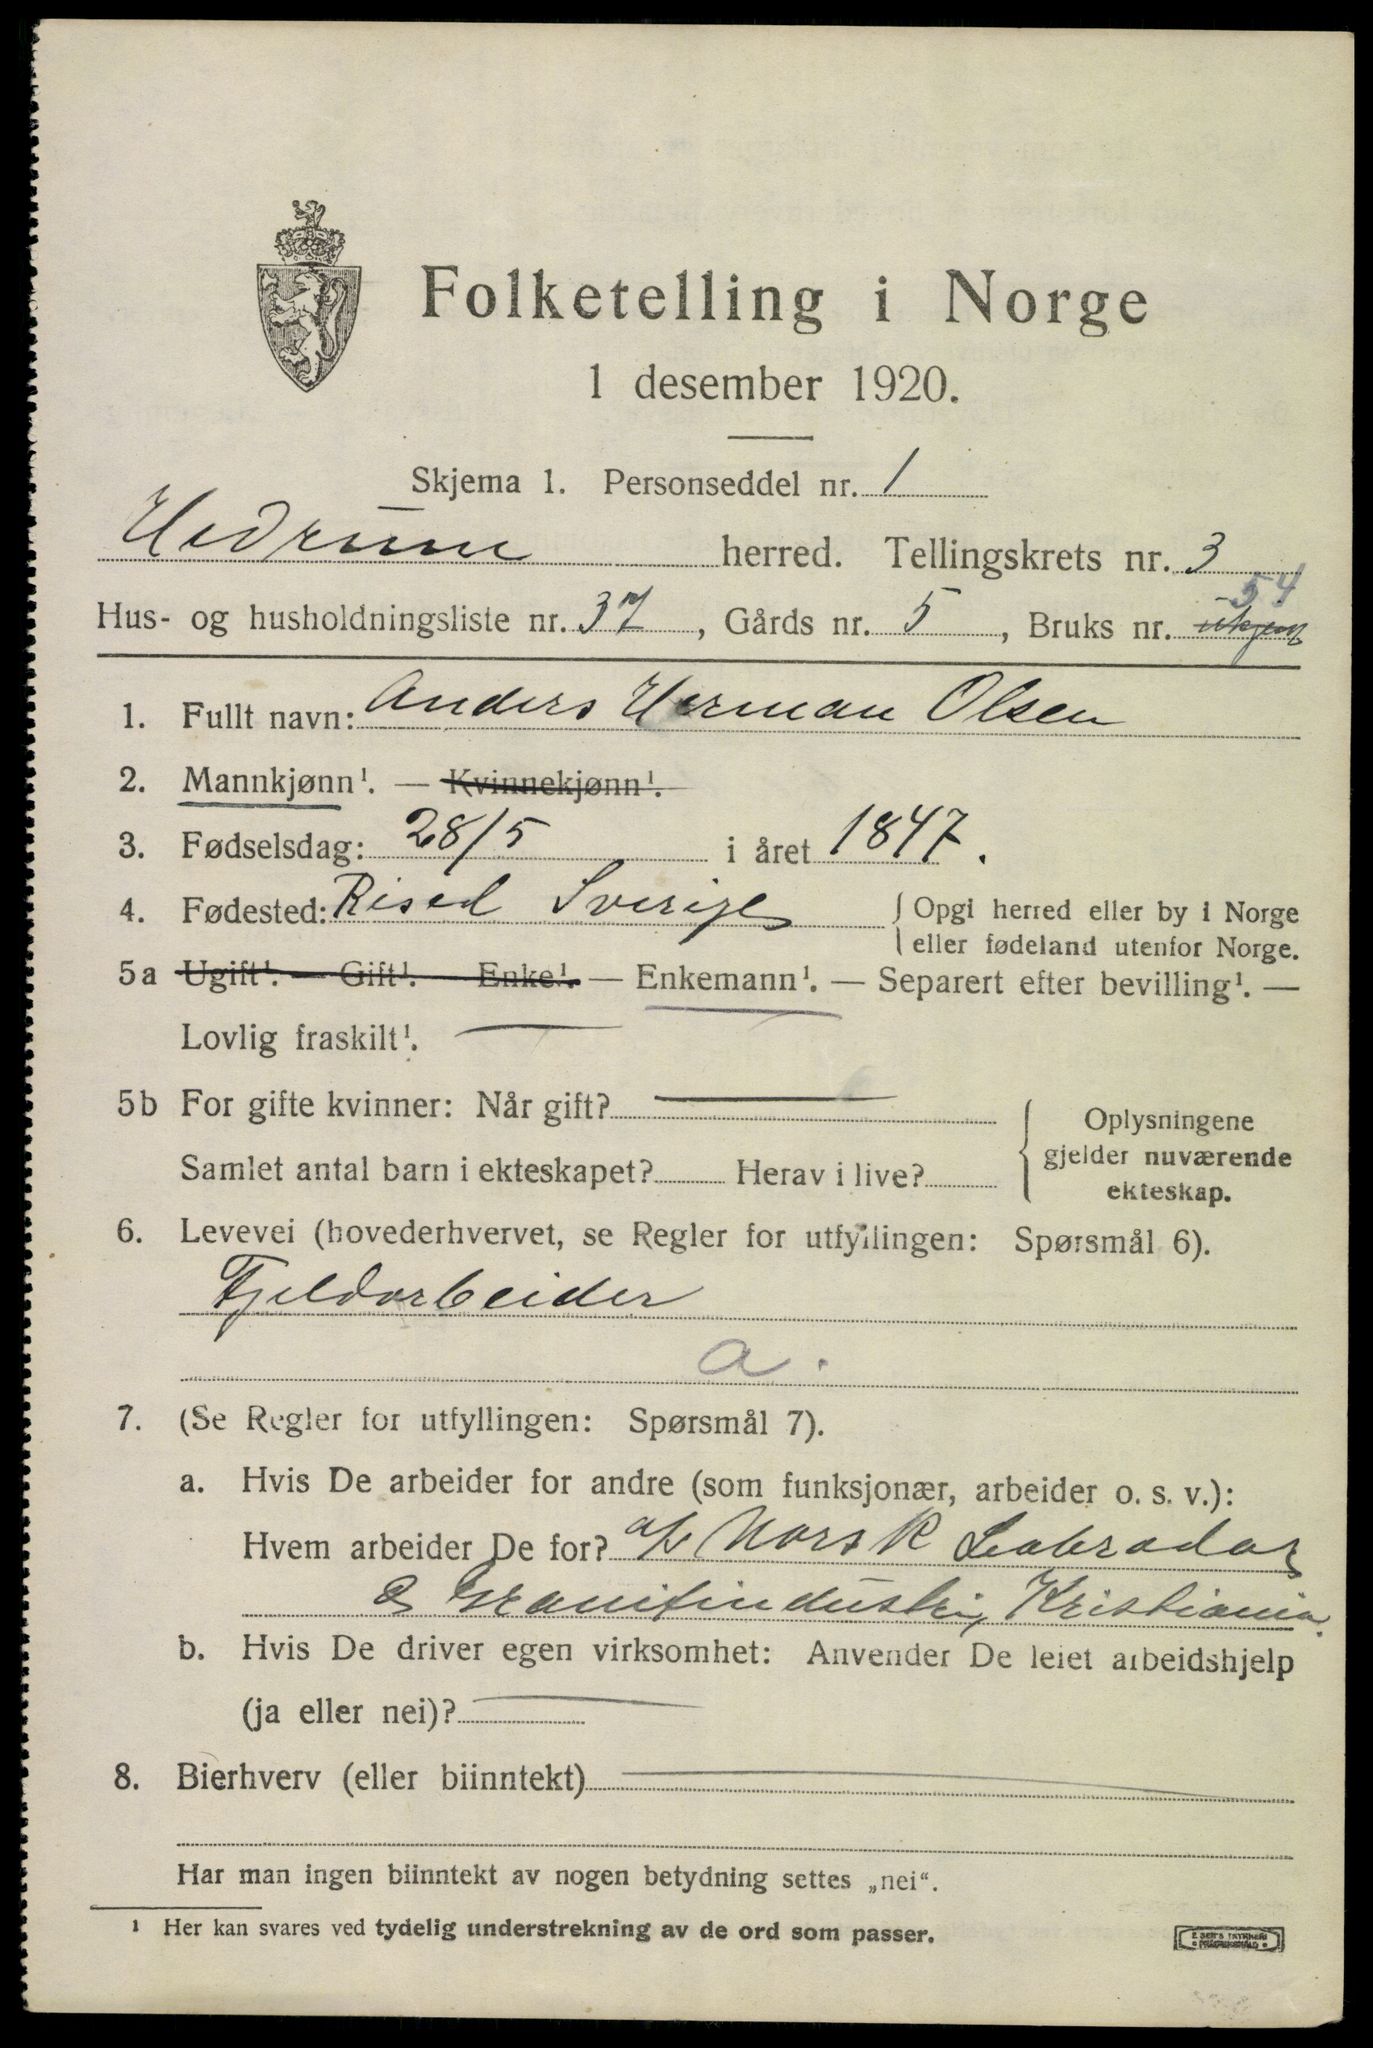 Folketelling i Norge
1 desember 1920.
Skjema 1. Personseddel nr. 1
Hedrum herred. Tellingskrets nr. 3
54
Hus- og husholdningsliste nr. 37, Gårds nr. 5, Bruks nr.
1. Fullt navn: Anders Herman Olsen
2. Mannkjønn¹. — Kvinnekjønn¹.
3. Fødselsdag: 28/5 i året 1847.
4. Fødested: Rised Sverige { Opgi herred eller by i Norge
eller fødeland utenfor Norge.
5a Ugift¹. — Gift¹. — Enke¹. — Enkemann¹. — Separert efter bevilling¹. —
Lovlig fraskilt¹.
5b For gifte kvinner: Når gift? { Oplysningene
gjelder nuværende
ekteskap.
Samlet antal barn i ekteskapet? Herav i live?
6. Levevei (hovederhvervet, se Regler for utfyllingen: Spørsmål 6).
Fjeldarbeider
a.
7. (Se Regler for utfyllingen: Spørsmål 7).
a. Hvis De arbeider for andre (som funksjonær, arbeider o. s. v.):
Hvem arbeider De for? a/s Norsk Labrador
& Granitindustri, Kristiania.
b. Hvis De driver egen virksomhet: Anvender De leiet arbeidshjelp
(ja eller nei)?
8. Bierhverv (eller biinntekt)
Har man ingen biinntekt av nogen betydning settes „nei“.
¹ Her kan svares ved tydelig understrekning av de ord som passer.